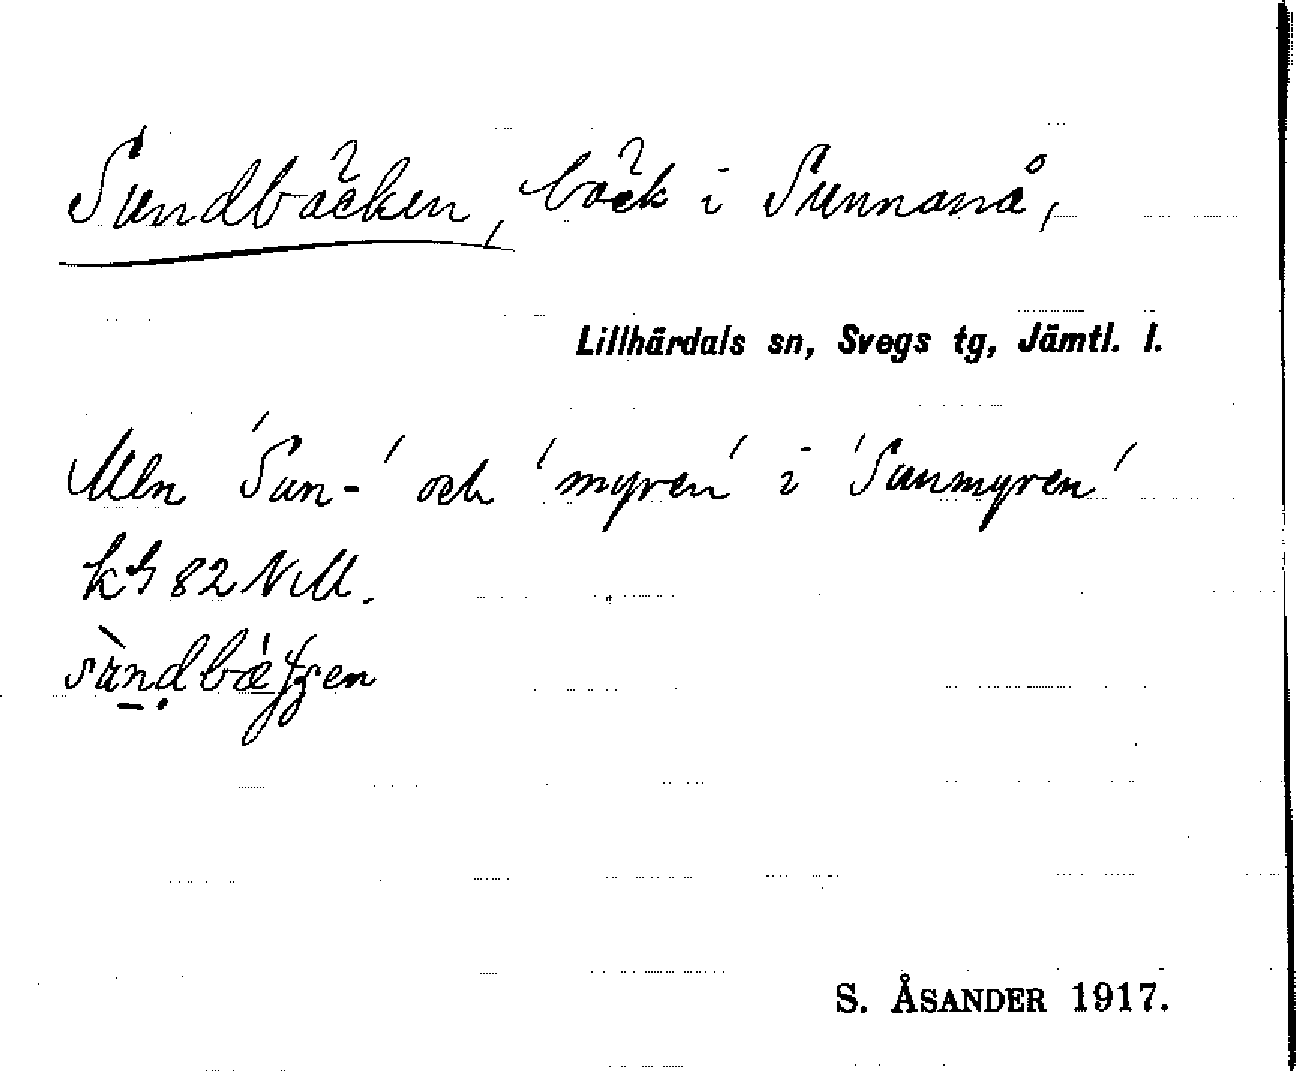 Sundbäcken, bäck i Sunnanå,
Lillhärdals sn, Svegs tg, Jämtl. l.
Mln 'Sun-' och 'myren' i 'Sunmyren'
kbl 82 NM.
S. ÅSANDER 1917.